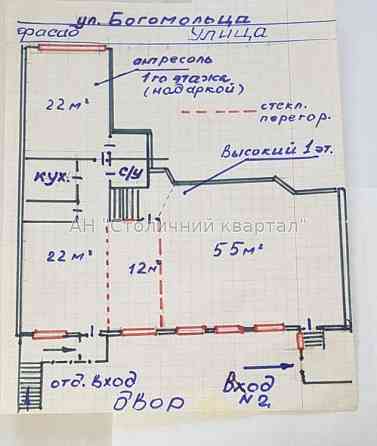 ул. Богомольца
фасад улица
антресоль
1го этажа
(надаркой)
22 м²
стекл.
перегор.
Высокий 1 эт.
кух.
с/у
АН "Столичний квартал"
22 м²
12 м²
55 м²
отд. вход
Вход
N 2.
двор